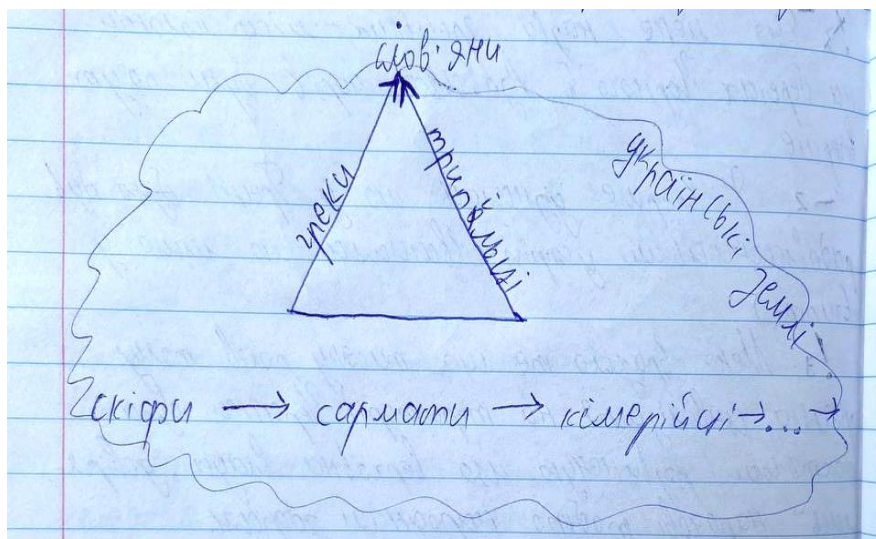 слов'яни
греки
трипільці
українські землі
скіфи → сармати → кімерійці → ... →